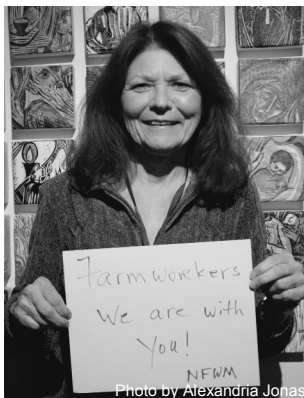 Farmworkers
We are with
You!
NFWM
Photo by Alexandria Jonas